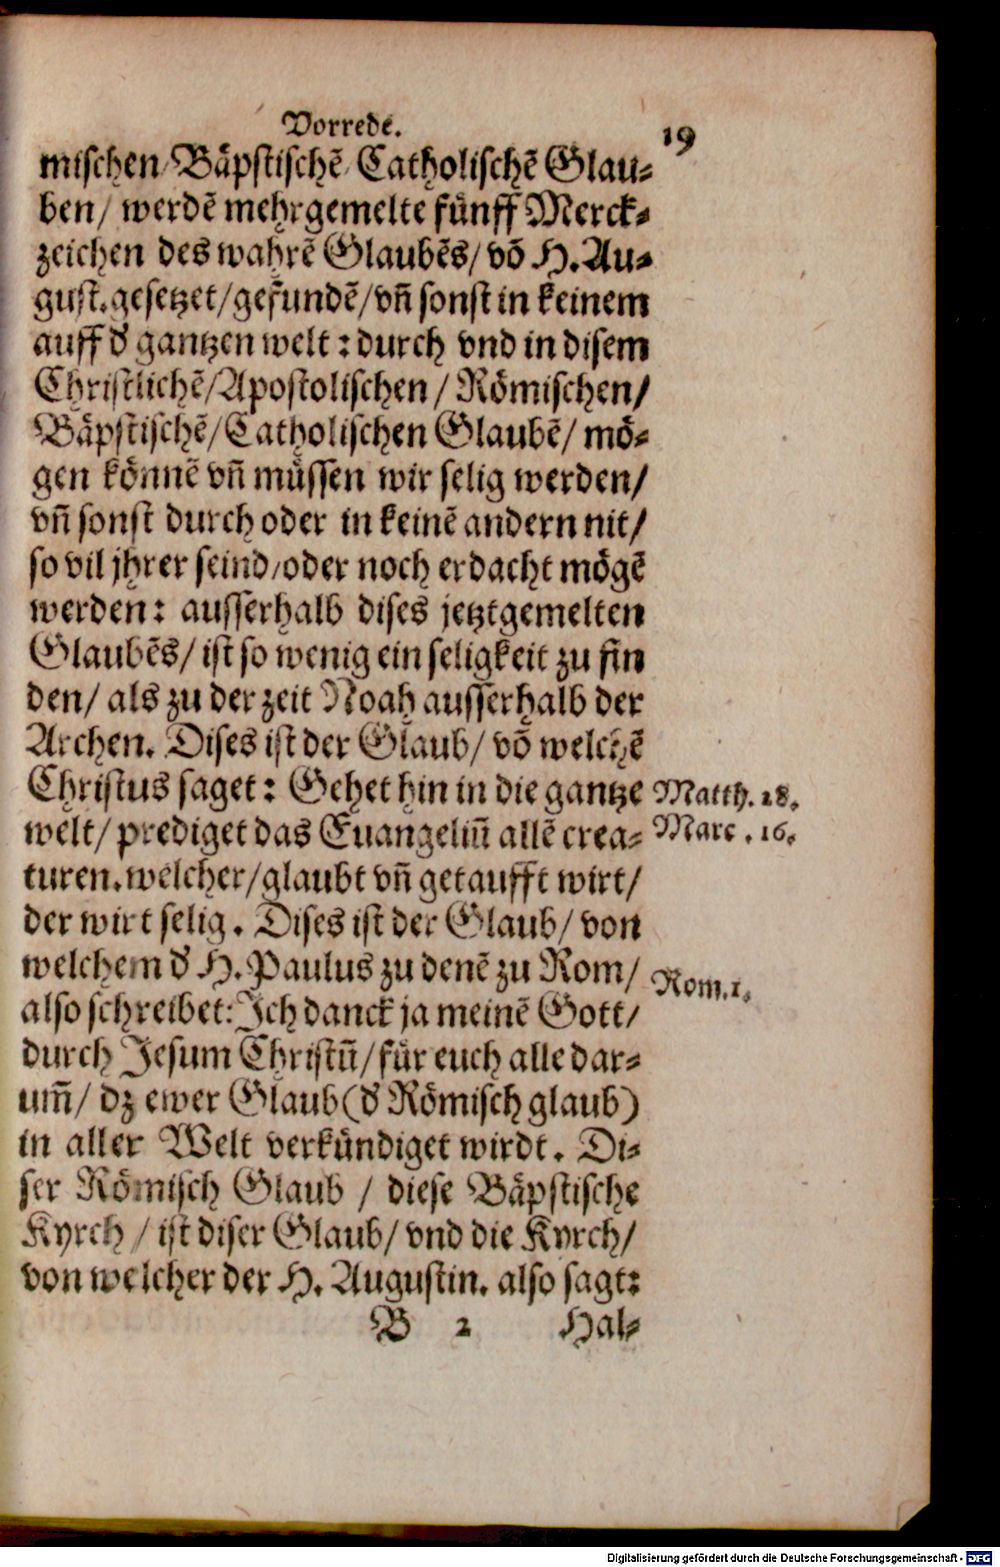 Vorrede. 19
mischen/Bäpstischẽ/Catholischẽ Glau-
ben/ werdẽ mehrgemelte fünff Merck-
zeichen des wahrẽ Glaubẽs/ võ H. Au-
gust. gesetzet/gefundẽ/vñ sonst in keinem
auff d' gantzen welt : durch vnd in disem
Christlichẽ/Apostolischen/ Römischen/
Bäpstischẽ/Catholischen Glaubẽ/ mö-
gen könnẽ vñ müssen wir selig werden/
vñ sonst durch oder in keinẽ andern nit/
so vil jhrer seind/oder noch erdacht mögẽ
werden: ausserhalb dises jetztgemelten
Glaubẽs/ ist so wenig ein seligkeit zu fin
den/ als zu der zeit Noah ausserhalb der
Archen. Dises ist der Glaub/ võ welchẽ
Christus saget: Gehet hin in die gantze Matth. 28.
welt/ prediget das Euangeliũ allẽ crea- Marc. 16.
turen. welcher/glaubt vñ getaufft wirt/
der wirt selig. Dises ist der Glaub/ von
welchem d' H. Paulus zu denẽ zu Rom/ Rom. 1.
also schreibet: Ich danck ja meinẽ Gott/
durch Jesum Christũ/für euch alle dar-
um̃/ dz ewer Glaub(d' Römisch glaub)
in aller Welt verkündiget wirdt. Di-
ser Römisch Glaub / diese Bäpstische
Kyrch / ist diser Glaub/ vnd die Kyrch/
von welcher der H. Augustin. also sagt:
B 2 Hal-
Digitalisierung gefördert durch die Deutsche Forschungsgemeinschaft - DFG